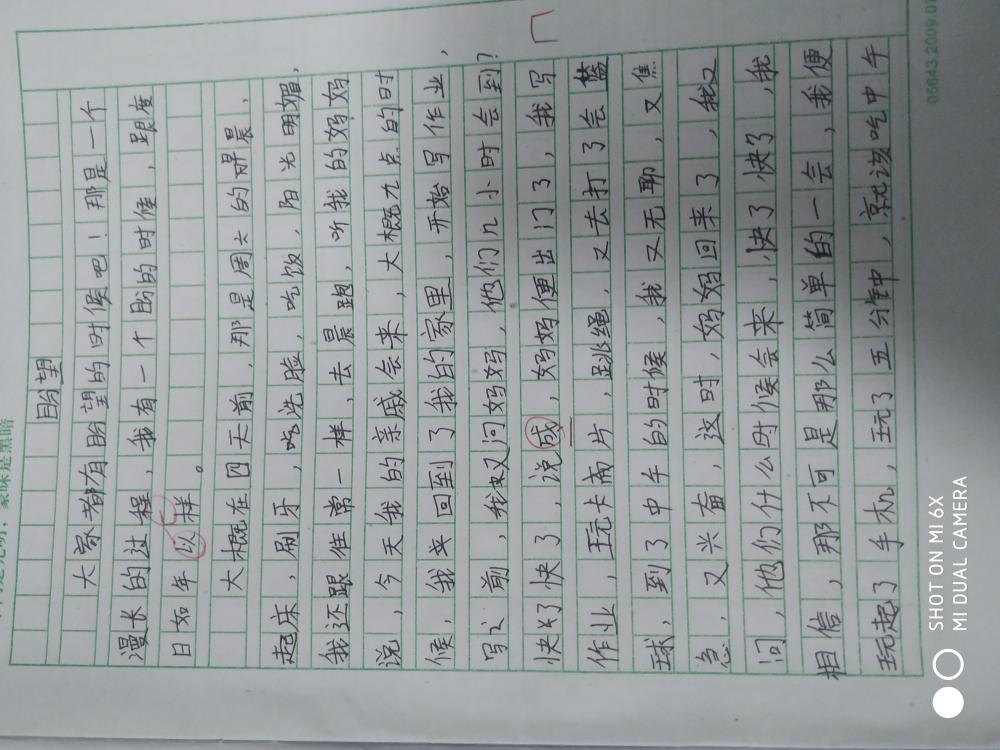 盼望
大家都有盼望的时候吧！那是一个
漫长的过程，我有一个盼的时候，跟度
日如年以样。
大概在四天前，那是周六的早晨，
起床，刷牙，吃洗脸，吃饭，阳光明媚，
我还跟往常一样，去晨跑，听我的妈妈
说，今天我的亲戚会来，大概九点的时
候，我来回到了我的家里，开始写作业，
写之前，我又问妈妈，他们几小时会到？
快了快了，说成，妈妈便出门了，我写
作业，玩卡商片，跳绳，又去打了会蓝
球，到了中午的时候，我又无聊，又焦
急，又兴奋，这时，妈妈回来了，我又
问，他们什么时候会来，快了快了，我
相信，那不可是那么简单的一会，我便
玩起了手机，玩了五分钟，就该吃中午
05643.2009.07
SHOT ON MI 6X
MI DUAL CAMERA